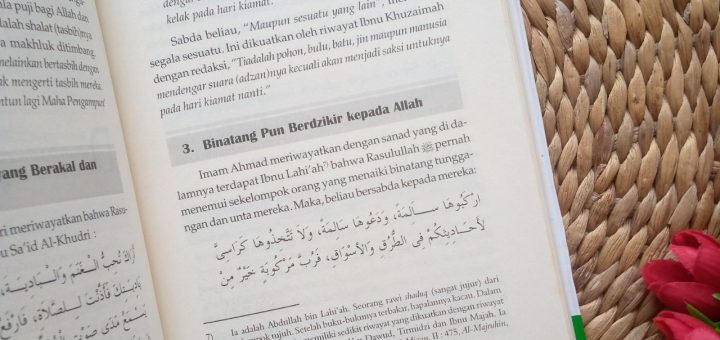 puji bagi Allah dan
lah shalat (tasbih)nya
makhluk ditimbang.
melainkan bertasbih dengan
k mengerti tasbih mereka.
tun lagi Maha Pengampun
yang Berakal dan
ri meriwayatkan bahwa Rasu-
u Sa'id Al-Khudri :
أَرَاكَ تُحِبُّ الْغَنَمَ وَالْبَادِيَةَ،
بَادِيَتِكَ فَأَذَّنْتَ لِلصَّلَاةِ، فَارْفَعْ
يَسْمَعُ مَدَى صَوْتِ
kelak pada hari kiamat.
Sabda beliau, "Maupun sesuatu yang lain",
segala sesuatu. Ini dikuatkan oleh riwayat Ibnu Khuzaimah
dengan redaksi, "Tiadalah pohon, bulu, batu, jin maupun manusia
mendengar suara (adzan)nya kecuali akan menjadi saksi untuknya
pada hari kiamat nanti."
3. Binatang Pun Berdzikir kepada Allah
Imam Ahmad meriwayatkan dengan sanad yang di da-
lamnya terdapat Ibnu Lahi'ah7) bahwa Rasulullah ﷺ pernah
menemui sekelompok orang yang menaiki binatang tungga-
ngan dan unta mereka. Maka, beliau bersabda kepada mereka:
ارْكَبُوهَا سَالِمَةً، وَدَعُوهَا سَالِمَةً، وَلَا تَتَّخِذُوهَا كَرَاسِيَّ
لِأَحَادِيثِكُمْ فِي الطُّرُقِ وَالْأَسْوَاقِ، فَرُبَّ مَرْكُوبَةٍ خَيْرٌ مِنْ
7) Ia adalah Abdullah bin Lahi'ah. Seorang rawi shaduq (sangat jujur) dari
tujuh. Setelah buku-bukunya terbakar, hapalannya kacau. Dalam
memiliki sedikit riwayat yang dikuatkan dengan riwayat
Dawud, Tirmudzi dan Ibnu Majah. Ia
II : 475, Al-Majruhin,